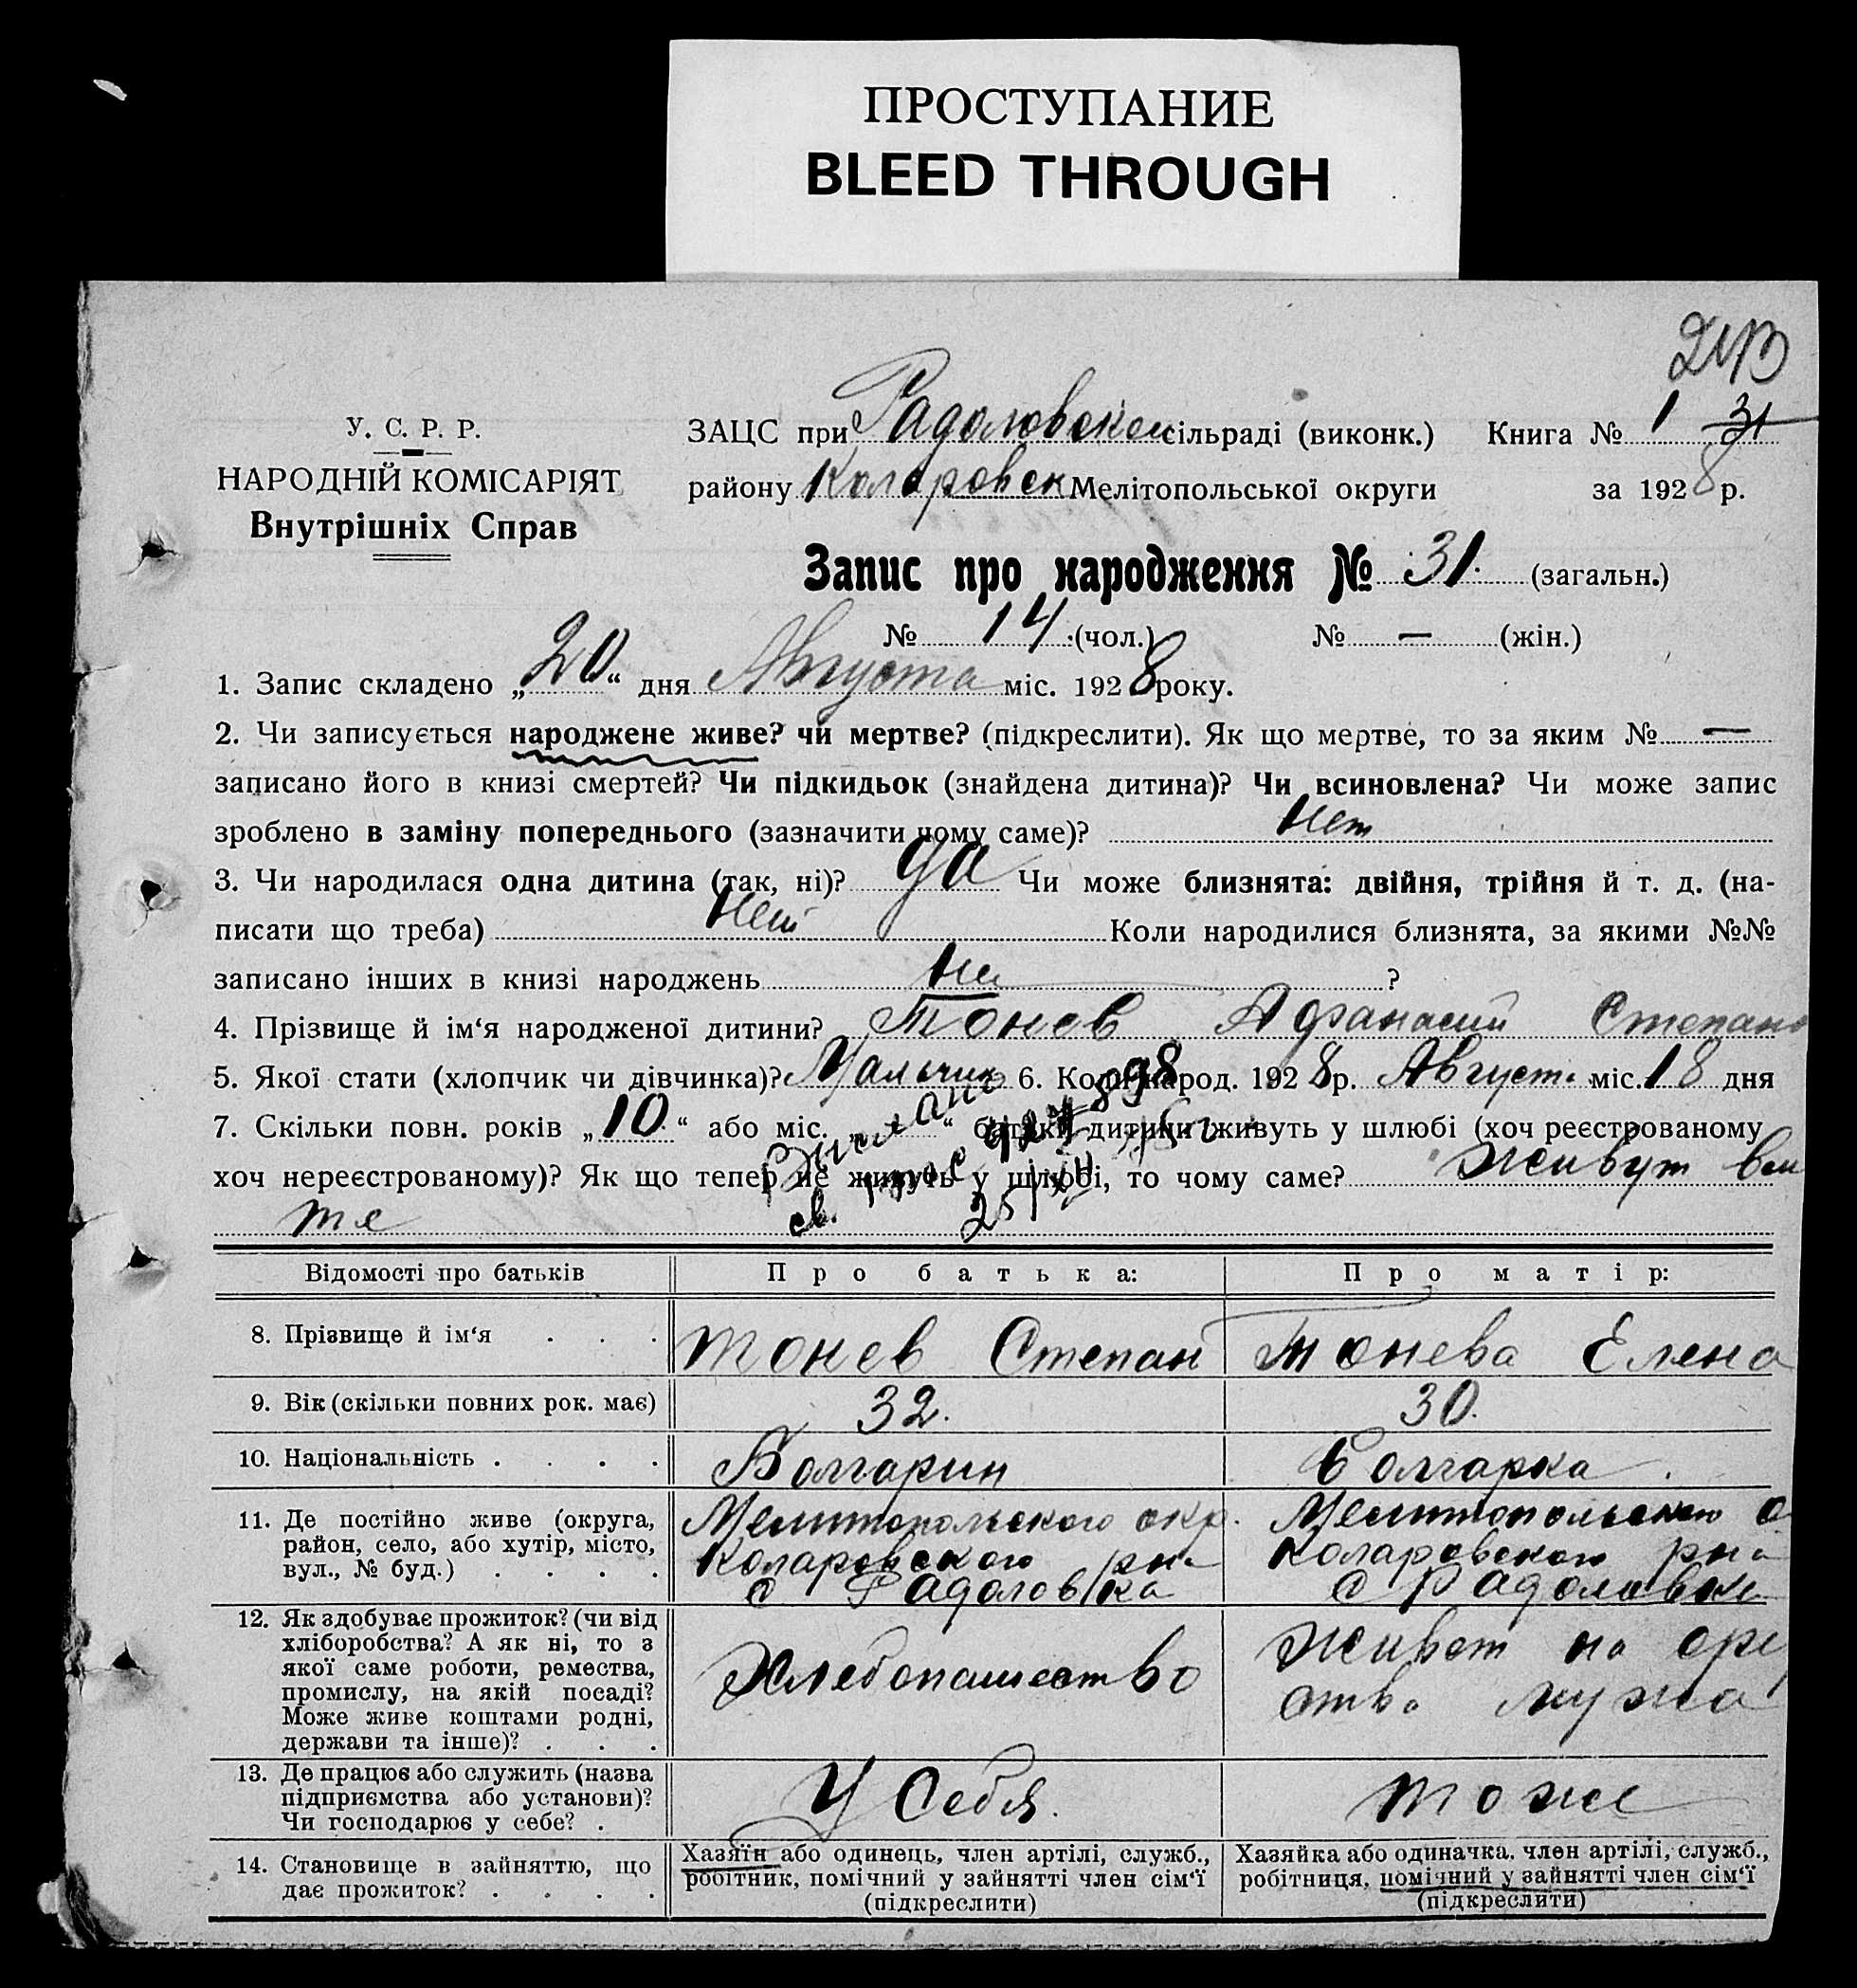 ПРОСТУПАНИЕ
BLEED THROUGH
У. С. Р. Р.
НАРОДНІЙ КОМІСАРІЯТ
Внутрішніх Справ
ЗАЦС при Радоловском сільраді (виконк.) Книга № 1 31
району Коларовск Мелітопольської округи за 1928 р.
Запис про народження № 31. (загальн.)
№ 14 (чол.) № — (жін.)
1. Запис складено „20“ дня Августа міс. 1928 року.
2. Чи записується народжене живе? чи мертве? (підкреслити). Як що мертве, то за яким № —
записано його в книзі смертей? Чи підкидьок (знайдена дитина)? Чи всиновлена? Чи може запис
зроблено в заміну попереднього (зазначити чому саме)? Нет
3. Чи народилася одна дитина (так, ні)? да Чи може близнята: двійня, трійня й т. д. (на-
писати що треба) Нет Коли народилися близнята, за якими №№
записано інших в книзі народжень ?
4. Прізвище й ім‘я народженої дитини? Тонев Афанасий Степано
5. Якої стати (хлопчик чи дівчинка)? Мальчик 6. Коли народ. 1928 р. Август. міс. 18 дня
7. Скільки повн. років „10.“ або міс. „ “ батьки дитини живуть у шлюбі (хоч реєстрованому
хоч нереєстрованому)? Як що тепер не живуть у шлюбі, то чому саме? Живут вм
те
Відомості про батьків
Про батька:
Про матір:
8. Прізвище й ім‘я . . .
Тонев Степан
Тонева Елена
9. Вік (скільки повних рок. має)
32.
30.
10. Національність . . . .
Болгарин
Болгарка
11. Де постійно живе (округа,
район, село, або хутір, місто,
вул., № буд.) . . . .
Мелитопольского окр.
Коларовского рна
с Радоловка
Мелитопольского о
Коларовского рна
с Радоловка
12. Як здобуває прожиток? (чи від
хліборобства? А як ні, то з
якої саме роботи, ремества,
промислу, на якій посаді?
Може живе коштами родні,
держави та інше)? . . .
Хлебопашество
Живет на сре
ства мужа
13. Де працює або служить (назва
підприємства або установи)?
Чи господарює у себе? .
У Себя.
тоже
14. Становище в зайняттю, що
дає прожиток? . . . .
Хазяїн або одинець, член артілі, служб.,
робітник, помічний у зайнятті член сім‘ї
(підкреслити)
Хазяйка або одиначка. член артілі, служб.,
робітниця, помічний у зайнятті член сім‘ї
(підкреслити)